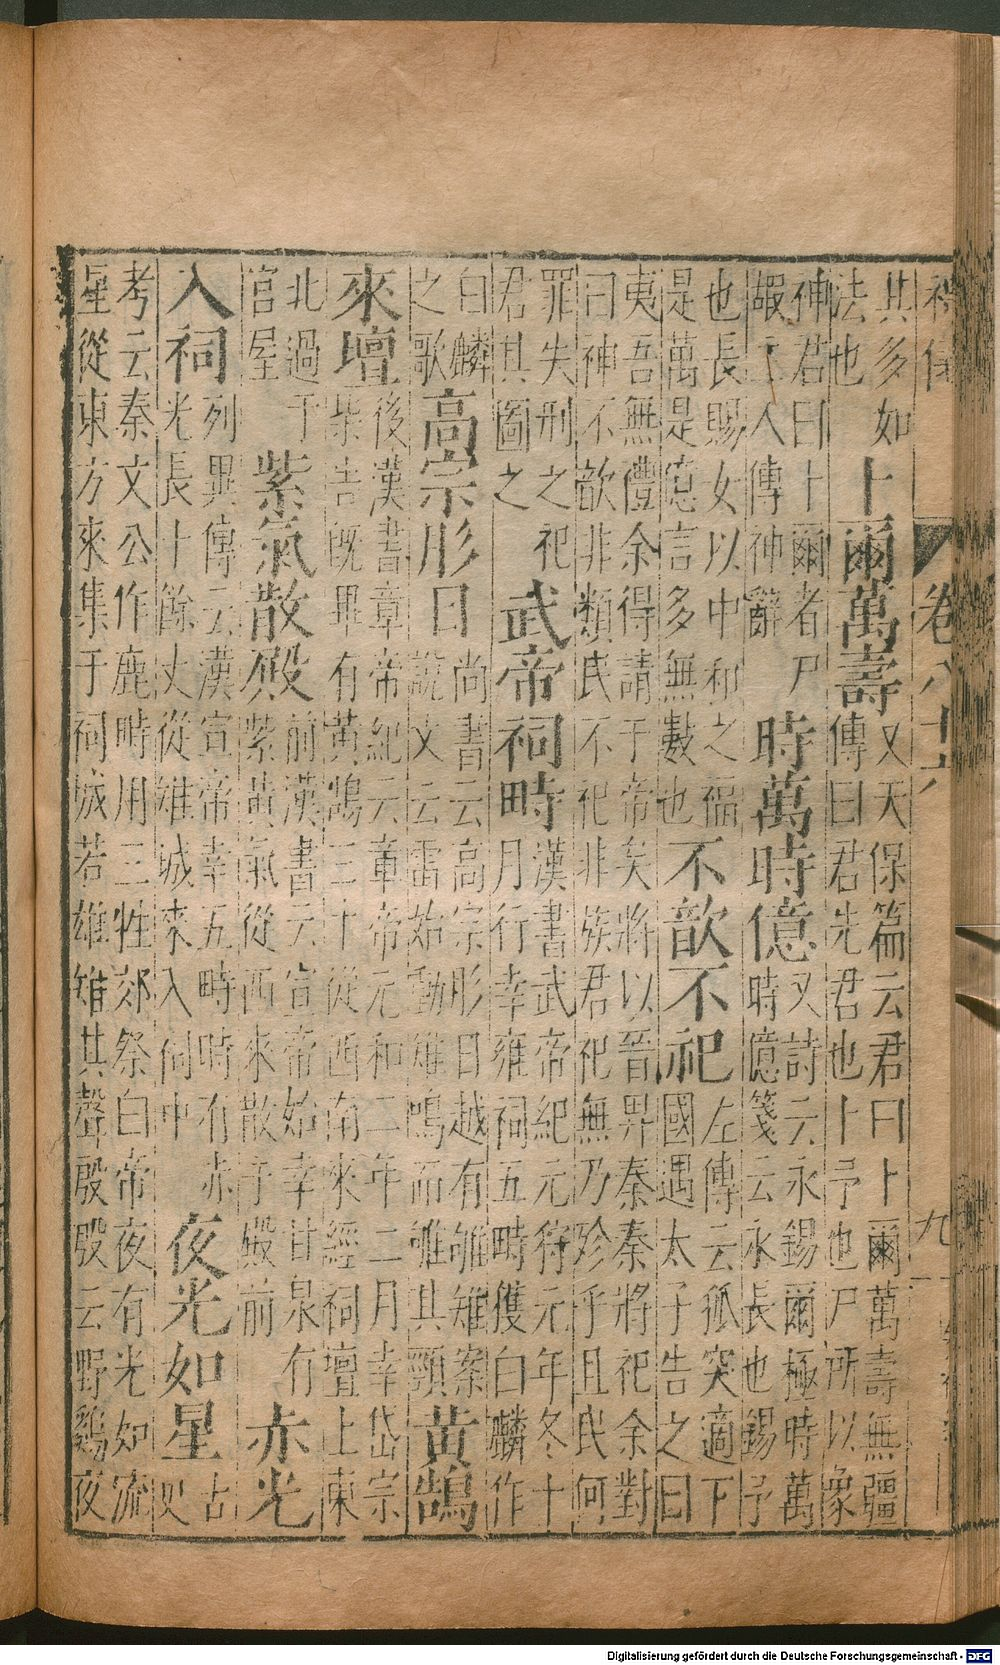 卷八十六
九
其多如
法也
卜爾萬壽
又天保篇云君曰卜爾萬壽無疆
傳曰君先君也卜予也尸所以象
神君曰卜爾者尸
嘏主人傳神辭
時萬時億
又詩云永錫爾極時萬
時億箋云永長也錫予
也長賜女以中和之福
是萬是億言多無數也
不歆不祀
左傳云狐突適下
國遇太子告之曰
夷吾無禮余得請于帝矣將以晉畀秦秦將祀余對
曰神不歆非類民不祀非族君祀無乃殄乎且民何
罪失刑之祀
君其圖之
武帝祠畤
漢書武帝紀元狩元年冬十
月行幸雍祠五畤獲白麟作
白麟
之歌
高宗肜日
尚書云高宗肜日越有雊雉案
說文云雷始動雉鳴而雊其頸
黃鵠
來壇
後漢書章帝紀云章帝元和二年二月幸岱宗
柴告既畢有黃鵠三十從西南來經祠壇上東
北過于
宮屋
紫氣散殿
前漢書云宣帝始幸甘泉有
紫黃氣從西來散于殿前
赤光
入祠
列異傳云漢宣帝幸五畤時有赤
光長十餘丈從雉城來入祠中
夜光如星
古
史
考云秦文公作鹿畤用三牲郊祭白帝夜有光如流
星從東方來集于祠城若雄雉其聲殷殷云野雞夜
Digitalisierung gefördert durch die Deutsche Forschungsgemeinschaft - DFG